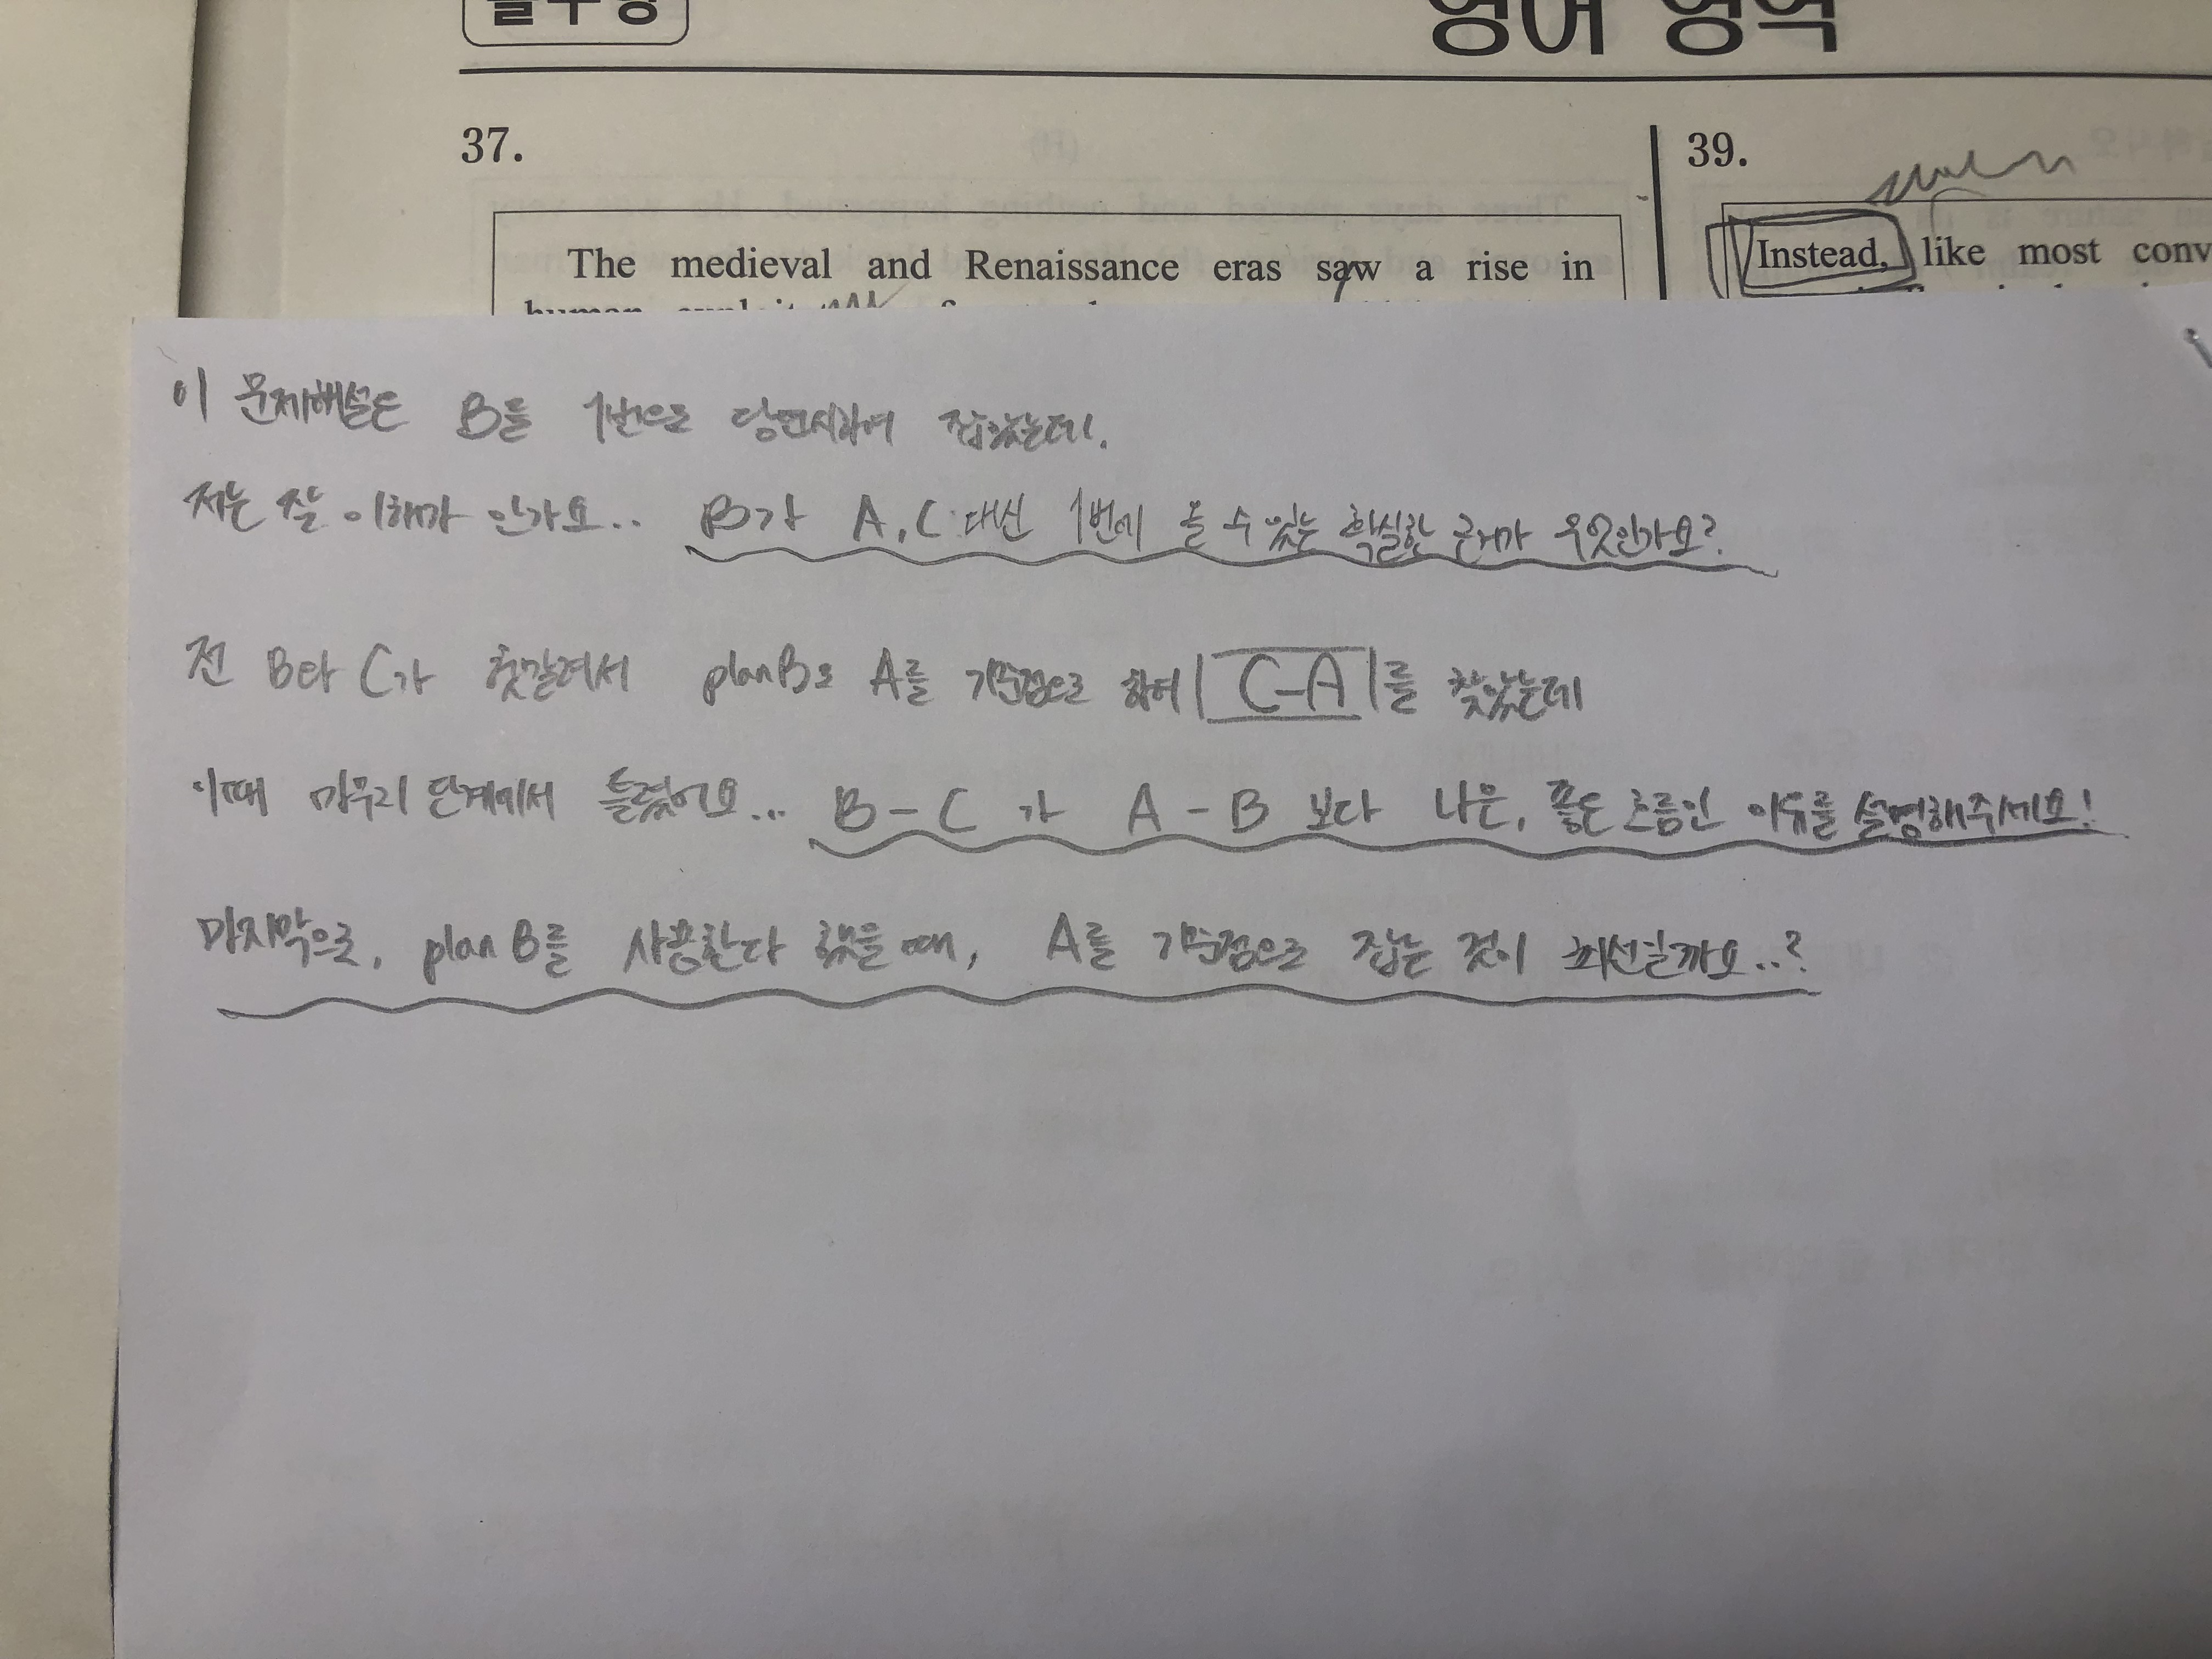 영어 영역
37.
The medieval and Renaissance eras saw a rise in
human
39.
Instead, like most conv
이 문제해설은 B를 1번으로 당연시하여 잡았는데,
저는 잘 이해가 안가요.. B가 A, C 대신 1번에 올 수 있는 확실한 근거가 무엇인가요?
전 B와 C가 헷갈려서 plan B로 A를 기준점으로 하여 C-A를 찾았는데
이때 마무리 단계에서 틀렸어요... B - C 가 A - B 보다 나은, 좋은 흐름인 이유를 설명해주세요!
마지막으로, plan B를 사용한다 했을 때, A를 기준점으로 잡는 것이 최선일까요..?